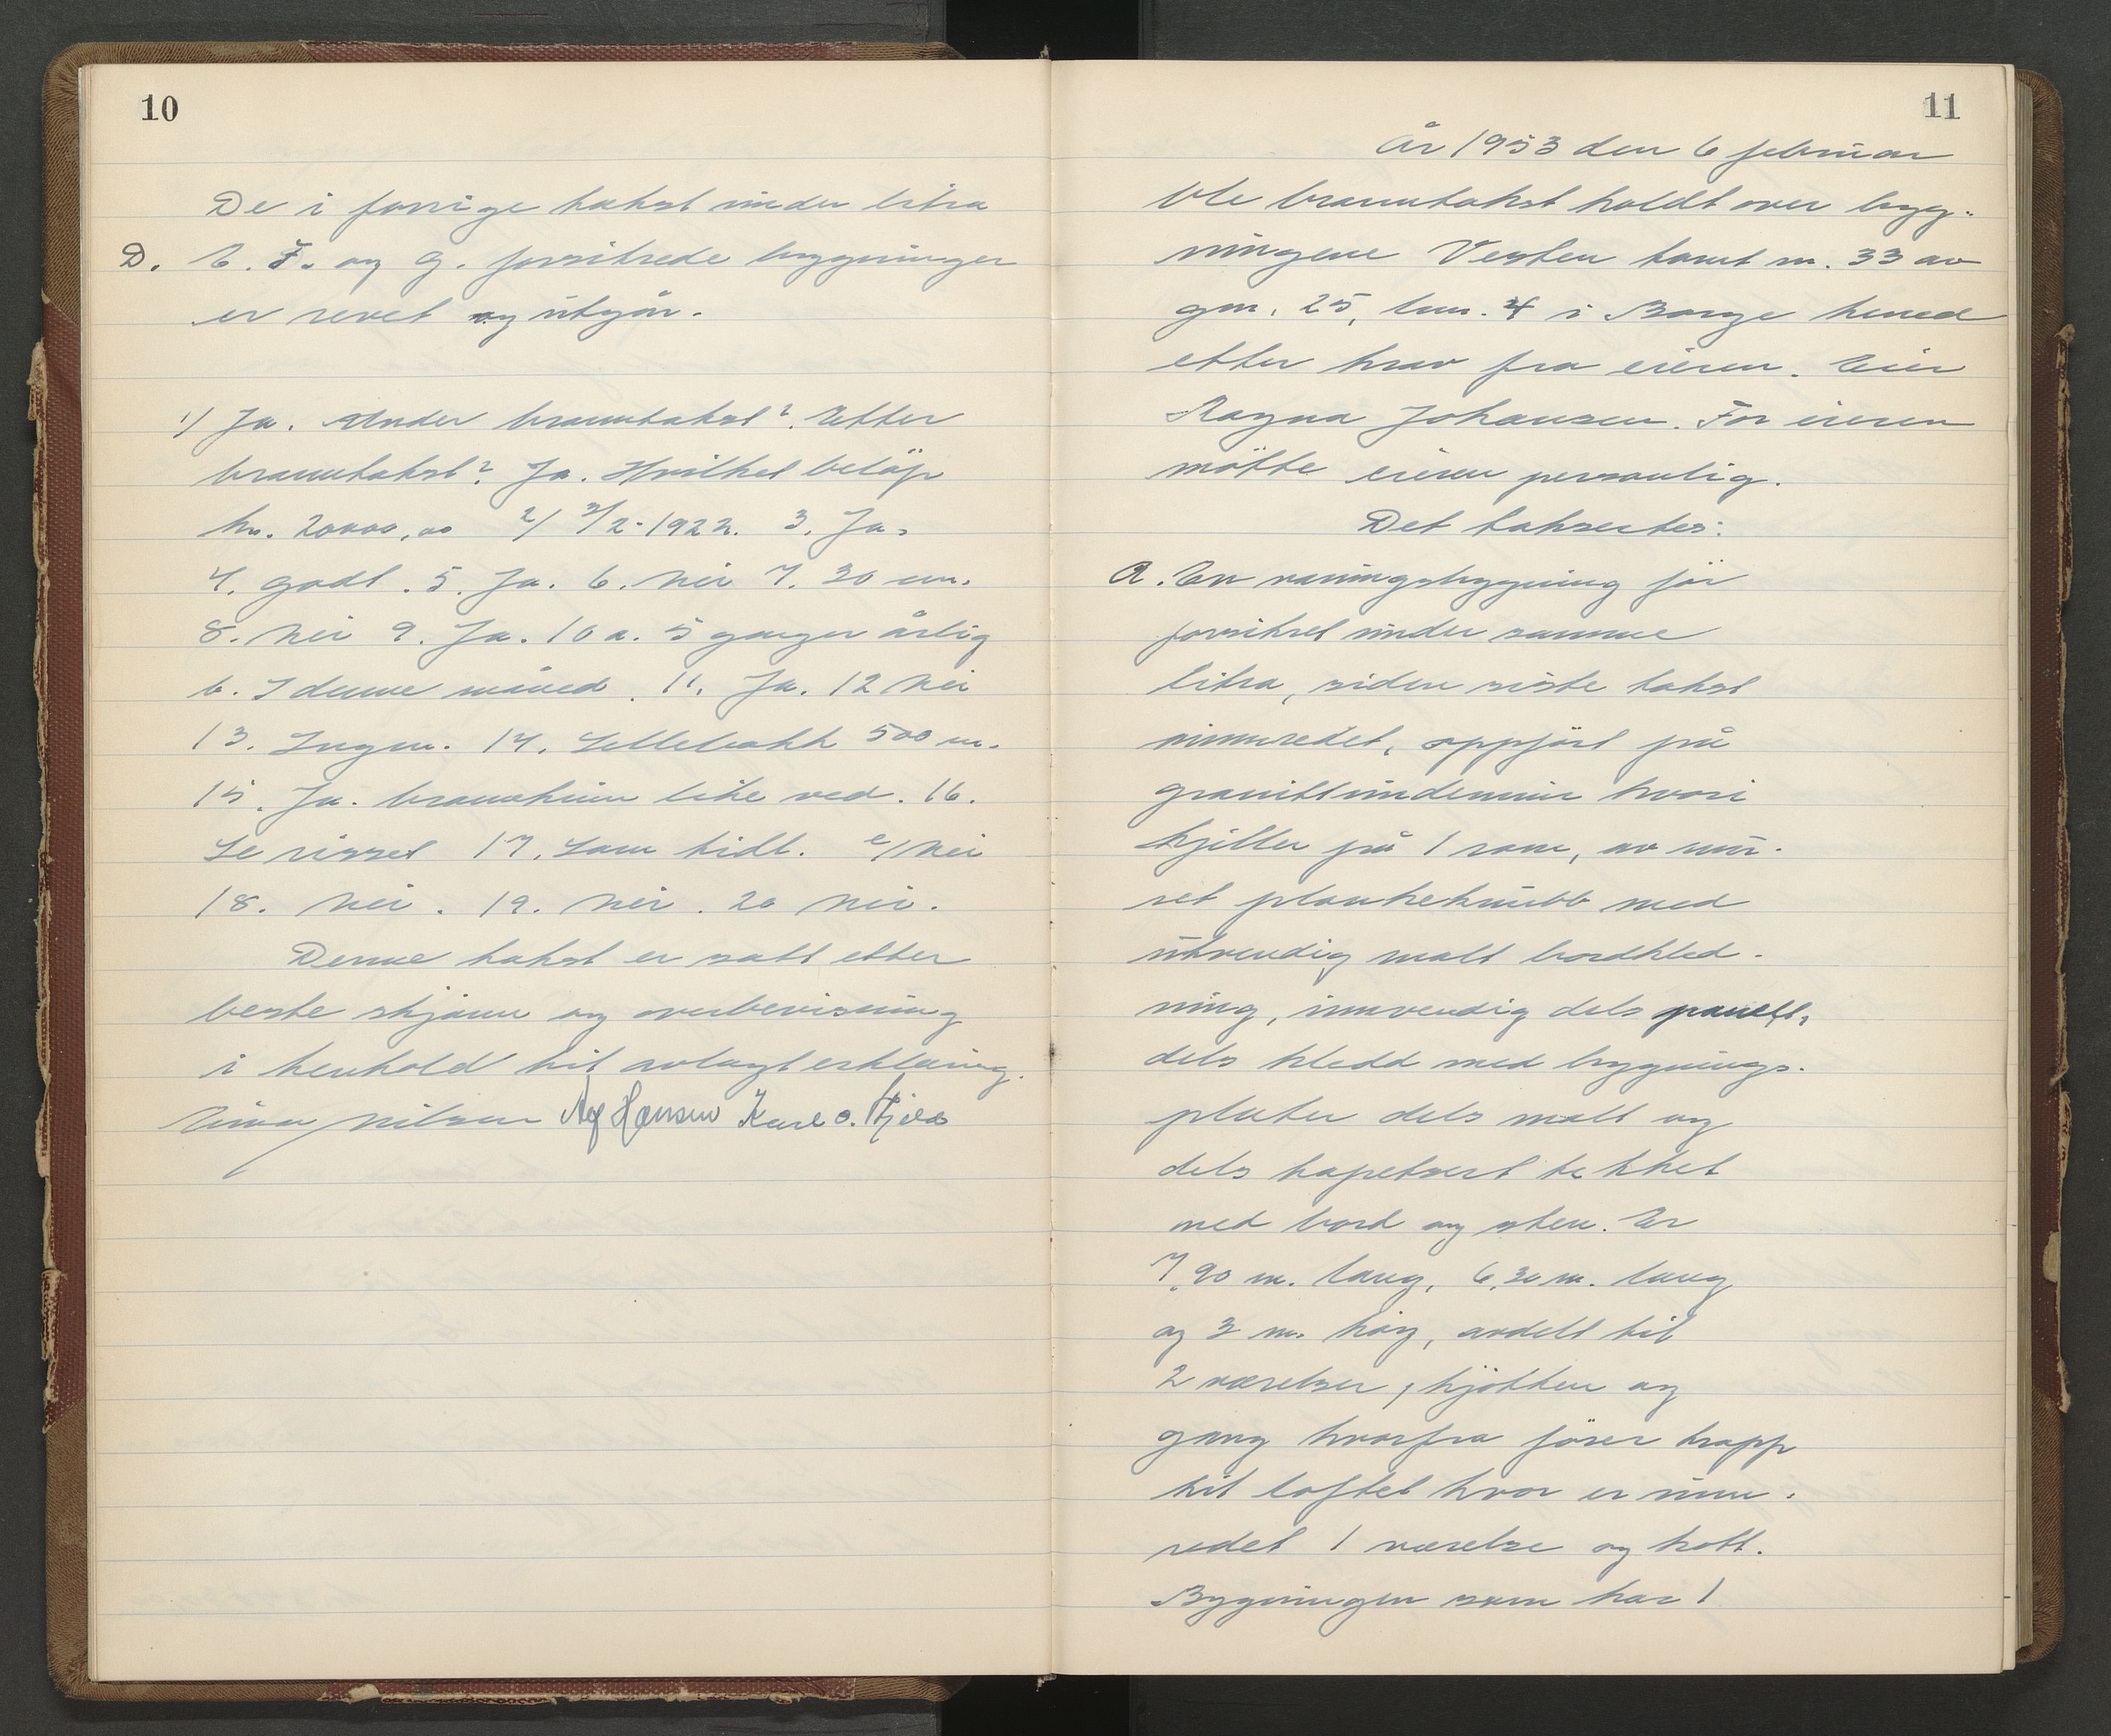 10
De i forrige takst under litra
D. E. F. og G. forsikrede bygninger
er revet og utgår.
1/ Ja. Under branntakst? Etter
branntakst? Ja. Hvilket beløp
kr. 20000,00 2/ 3/2-1922. 3. Ja.
4. godt. 5. Ja. 6. Nei 7. 30 cm.
8. Nei 9. Ja. 10 a. 5 ganger årlig
b. I denne måned. 11. Ja. 12 Nei
13. Ingen. 14. Lellebakk 500 m.
15. Ja. brannkum like ved. 16.
Se risset 17. Som bidt. e/ Nei
18. Nei. 19. Nei. 20 Nei.
Denne takst er satt etter
beste skjønn og overbevisning
i henhold til avlagt erklæring.
Einar Nilsen Alf Hansen Karl O.
11
År 1953 den 6 februar
ble branntakst holdt over byg-
ningene Vesten tomt nr. 33 av
gnr. 25, bnr. 4 i Borge herred
etter krav fra eieren. Eier
Ragna Johansen. For eieren
møtte eieren personlig.
Det taksertes:
A. En våningsbygning før
forsikret under samme
litra, siden siste takst
innredet, oppført på
granittundermur hvori
kjeller på 1 rom, av mur-
set plankekubb med
utvendig malt bordkled-
ning, innvendig dels panelt,
dels kledd med bygnings-
plater dels malt og
dels tapetsert tekket
med bord og sten. Er
7,90 m. lang, 6,30 m. lang
og 3 m. høy, avdelt til
2 værelser, kjøkken og
gang hvorfra fører trapp
til loftet hvor er inn-
redet 1 værelse og kott.
Bygningen som har 1